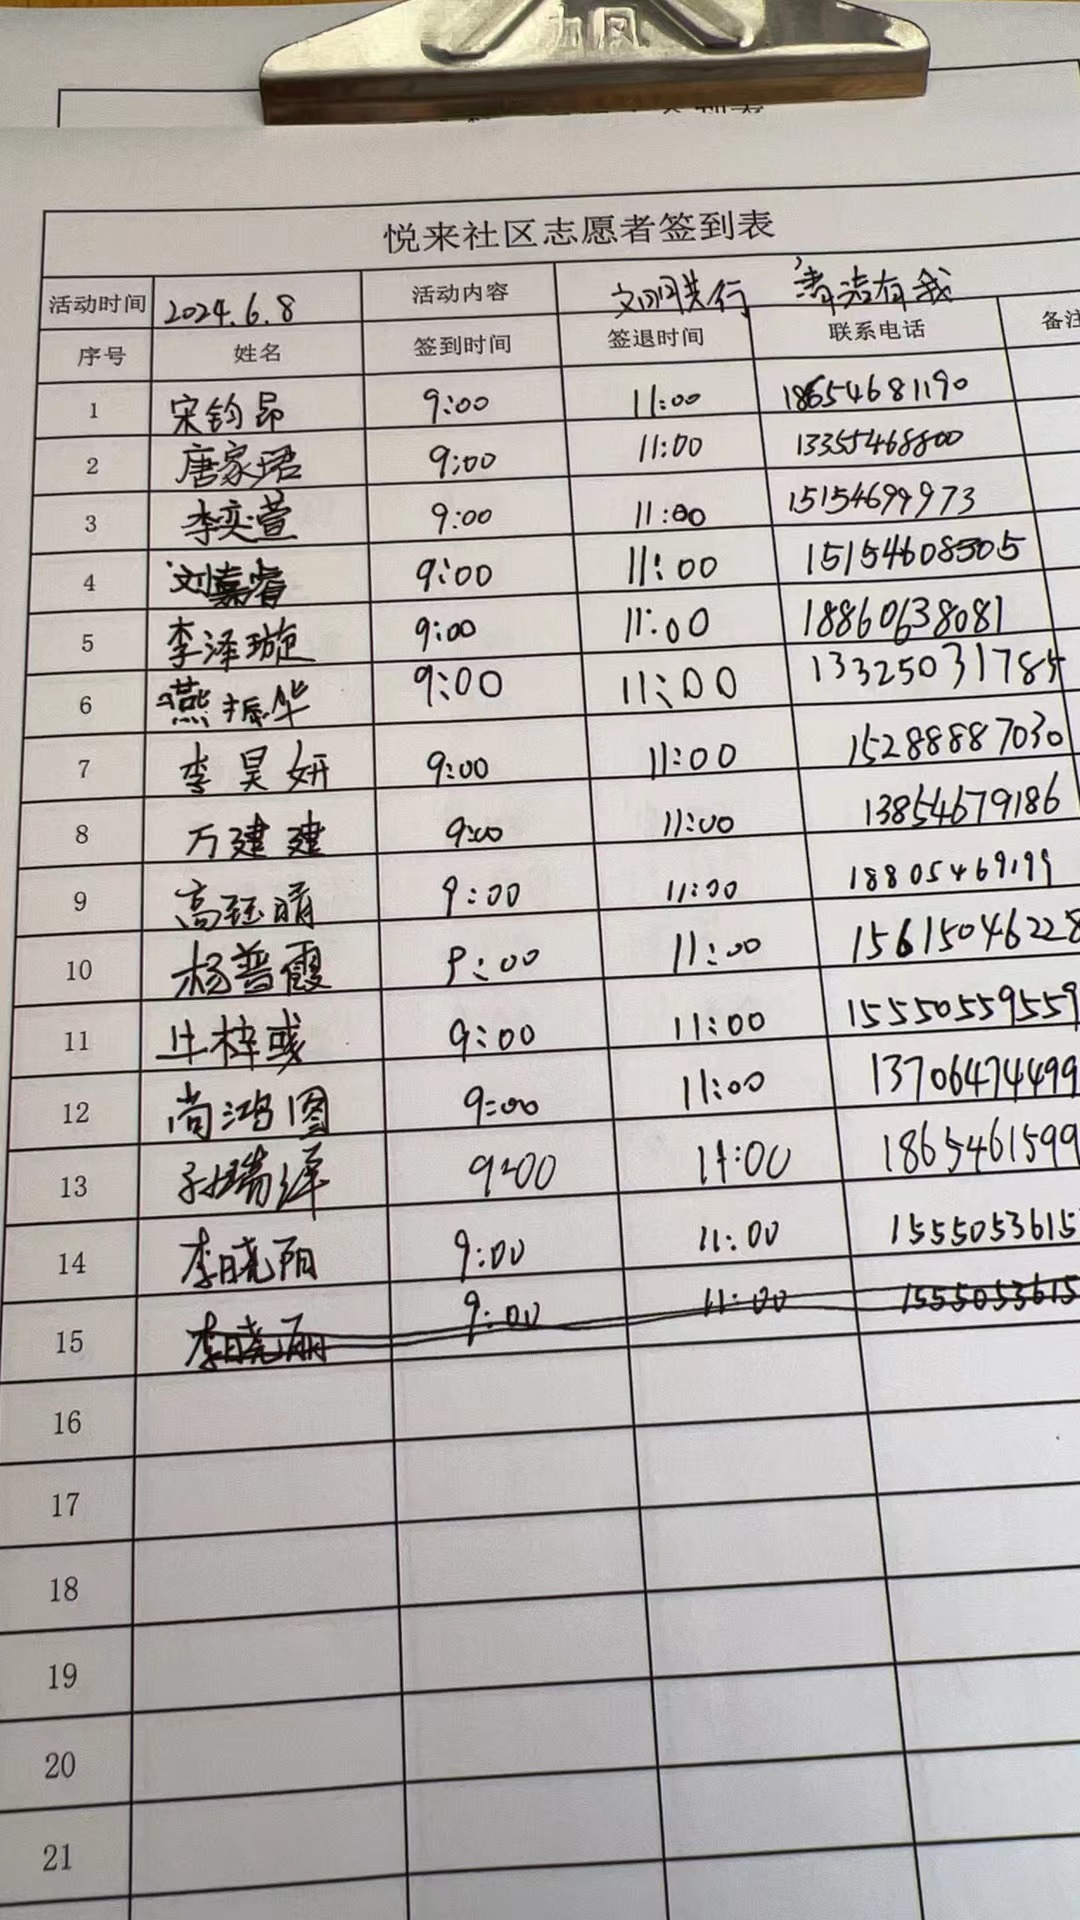 力风
悦来社区志愿者签到表
活动时间 2024.6.8 活动内容 文明共行 清洁有我
序号 姓名 签到时间 签退时间 联系电话 备注
1 宋钧昂 9:00 11:00 18654681190
2 唐家珺 9:00 11:00 13355468800
3 李奕萱 9:00 11:00 15154699973
4 刘嘉睿 9:00 11:00 15154608505
5 李泽璇 9:00 11:00 18860638081
6 燕振华 9:00 11:00 13325031785
7 李昊妍 9:00 11:00 15288887030
8 万建建 9:00 11:00 13854679186
9 高钰晴 9:00 11:00 18805469199
10 杨普霞 9:00 11:00 15615046228
11 牛梓彧 9:00 11:00 15550559559
12 尚鸿图 9:00 11:00 13706474499
13 孙瑞泽 9:00 11:00 1865461599
14 李晓阳 9:00 11:00 1555053615
15 李晓丽 9:00 11:00 1555053615
16
17
18
19
20
21